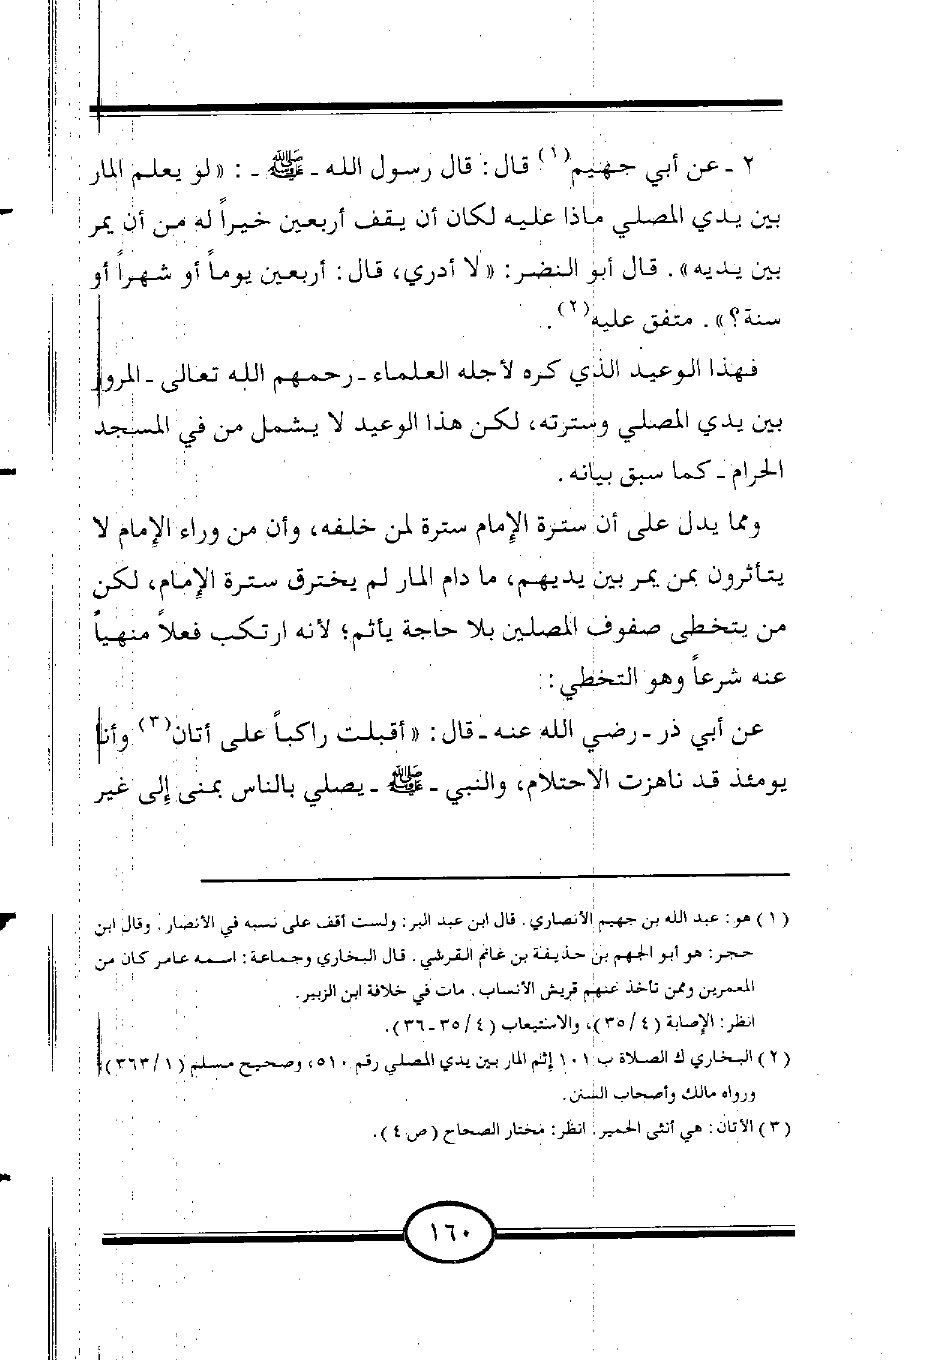 ٢ ـ عن أبي جهيم(١) قال: قال رسول الله ـ ﷺ ـ : «لو يعلم المار
بين يدي المصلي ماذا عليه لكان أن يقف أربعين خيراً له من أن يمر
بين يديه». قال أبو النضر: «لا أدري، قال: أربعين يوماً أو شهراً أو
سنة؟». متفق عليه(٢).
فهذا الوعيد الذي كره لأجله العلماء ـ رحمهم الله تعالى ـ المرور
بين يدي المصلي وسترته، لكن هذا الوعيد لا يشمل من في المسجد
الحرام ـ كما سبق بيانه.
ومما يدل على أن سترة الإمام سترة لمن خلفه، وأن من وراء الإمام لا
يتأثرون بمن يمر بين يديهم، ما دام المار لم يخترق سترة الإمام، لكن
من يتخطى صفوف المصلين بلا حاجة يأثم؛ لأنه ارتكب فعلاً منهياً
عنه شرعاً وهو التخطي:
عن أبي ذر ـ رضي الله عنه ـ قال: «أقبلت راكباً على أتان(٣) وأنا
يومئذ قد ناهزت الاحتلام، والنبي ـ ﷺ ـ يصلي بالناس بمنى إلى غير
(١) هو: عبد الله بن جهيم الأنصاري. قال ابن عبد البر: ولست أقف على نسبه في الأنصار. وقال ابن
حجر: هو أبو الجهم بن حذيفة بن غانم القرشي. قال البخاري وجماعة: اسمه عامر كان من
المعمرين وممن تأخذ عنهم قريش الأنساب. مات في خلافة ابن الزبير.
انظر: الإصابة (٤/ ٣٥)، والاستيعاب (٤/ ٣٥ـ٣٦).
(٢) البخاري ك الصلاة ب ١٠١ إثم المار بين يدي المصلي رقم ٥١٠، وصحيح مسلم (١/ ٣٦٣)
ورواه مالك وأصحاب السنن.
(٣) الأتان: هي أنثى الحمير. انظر: مختار الصحاح (ص ٤).
١٦٠